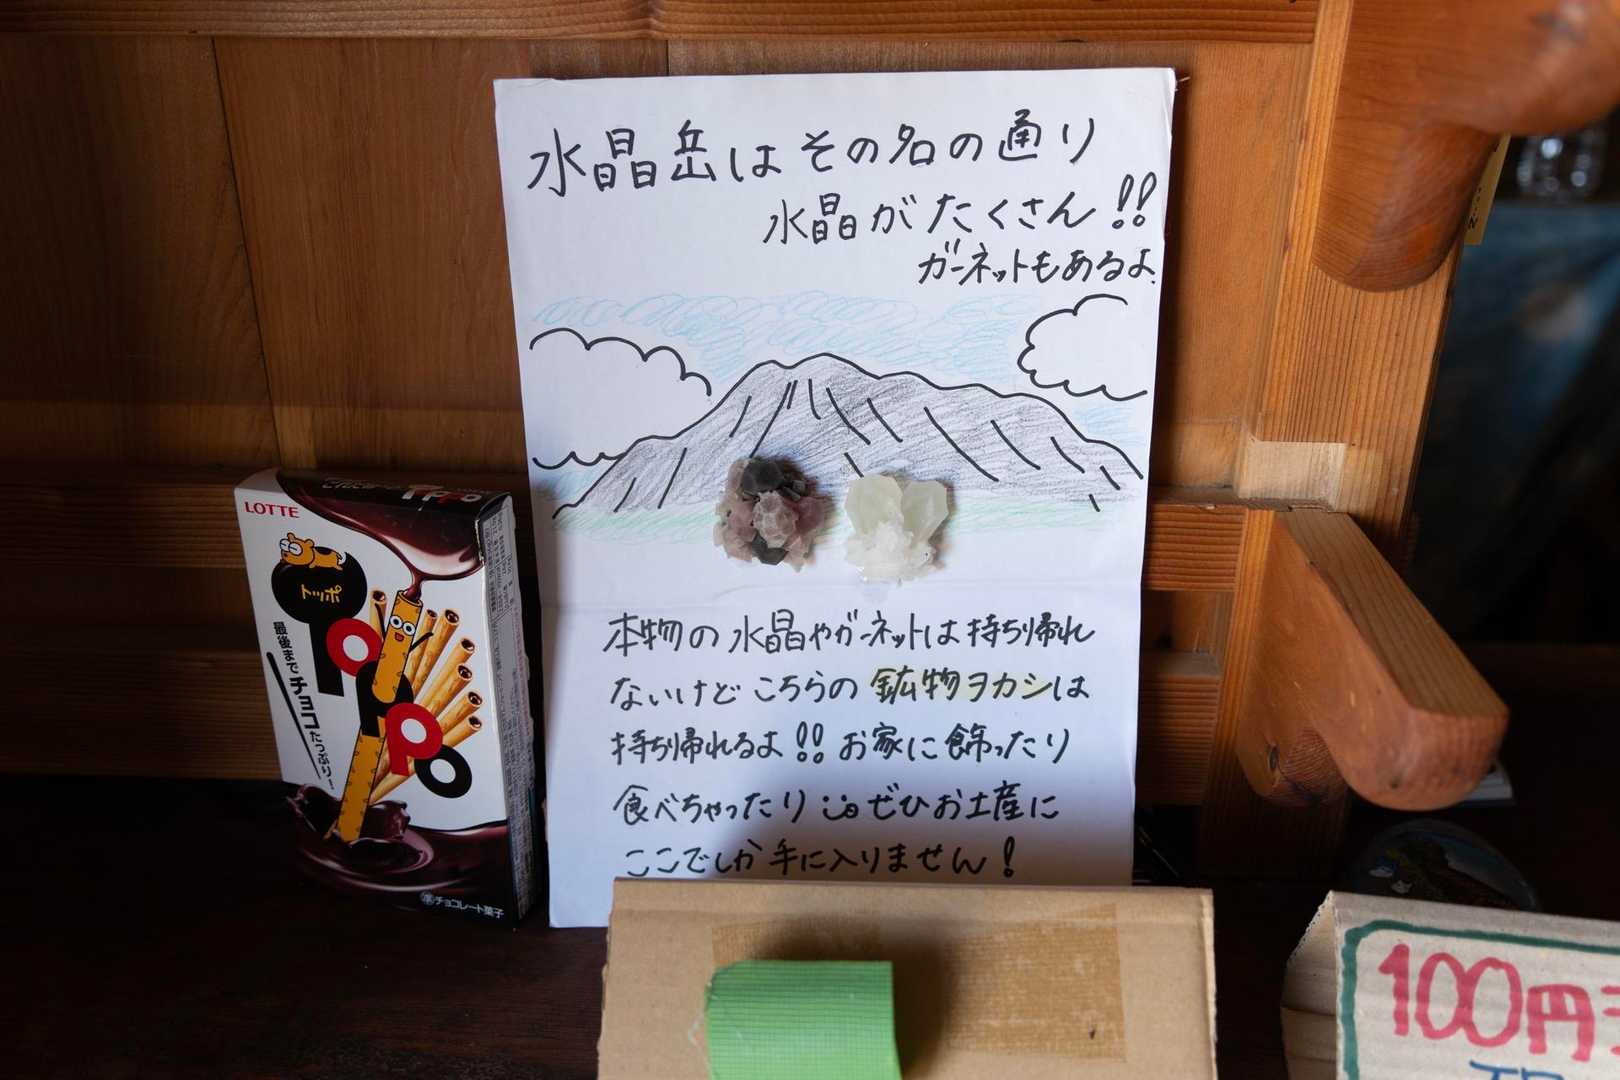 水晶岳はその名の通り
水晶がたくさん!!
ガーネットもあるよ.
本物の水晶やガーネットは持ち帰れ
ないけどこちらの鉱物ヲカシは
持ち帰れるよ!!お家に飾ったり
食べちゃったり ぜひお土産に
ここでしか手に入りません!
LOTTE
トッポ
TOPPO
最後までチョコたっぷり!
準チョコレート菓子
100円